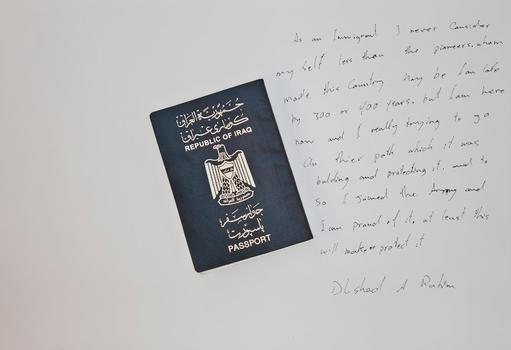 جمهورية العراق
كۆماری عێراق
REPUBLIC OF IRAQ
جواز سفر
پاسپۆرت
PASSPORT
As an Immigrant I never consider
my self less than the pioneers, whom
made this country may be I am late
by 300 or 400 years. but I am here
now and I really trying to go
On thier path which it was
bulding and protecting it. and to
So I joined the Army and
I am proud of it. at least this
will make protect it
Dlshad A Rahim